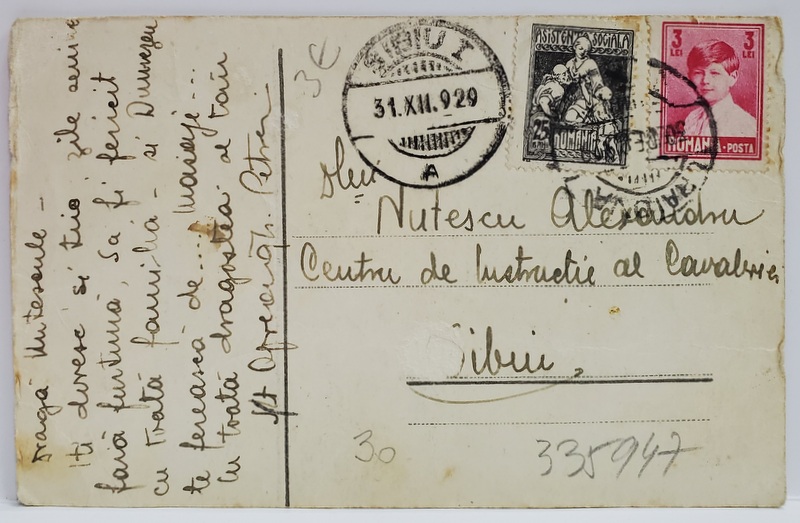 Dragă Nutescule –
Iți doresc si ție zile senine
fără furtună, Să fi fericit
cu toată familia – si Dumnezeu
te ferească de .... Masaje ....
Cu toată dragostea al tău
Petre
SIBIU I
31.XII.929
A
ASISTENȚA SOCIALA
25
BANI
ROMANIA
3 LEI
3 LEI
ROMANIA-POSTA
Dlui
Nutescu Alexandru
Centru de Instructie al Cavaleriei
Sibiu,
30
335947